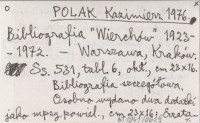 POLAK Kazimierz 1976.
Bibliografia "Wierchów" 1923-
-1972. - Warszawa, Kraków.
Ss. 531, tabl. 6, okł., cm 23x16.
Bibliografia szczegółowa.
Osobno wydano dwa dodatki
jako mpsy powiel., cm 23x16, Errata-